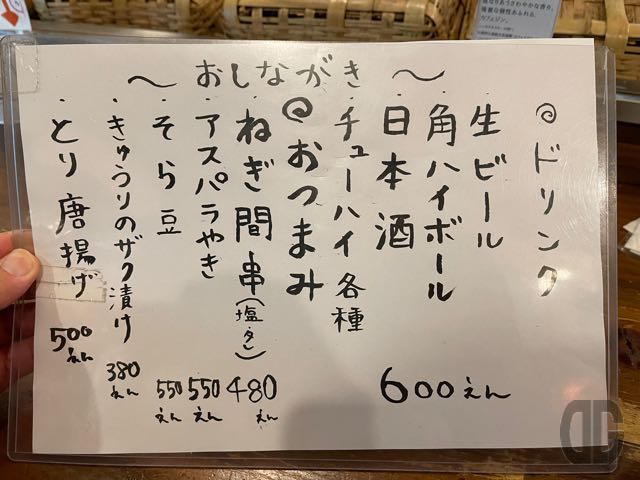 ～おしながき～
◎ドリンク
・生ビール
・角ハイボール
・日本酒
・チューハイ各種
600えん
◎おつまみ
・ねぎ間串(塩・タレ) 480えん
・アスパラやき 550えん
・そら豆 550えん
・きゅうりのザク漬け 380えん
・とり唐揚げ 500えん